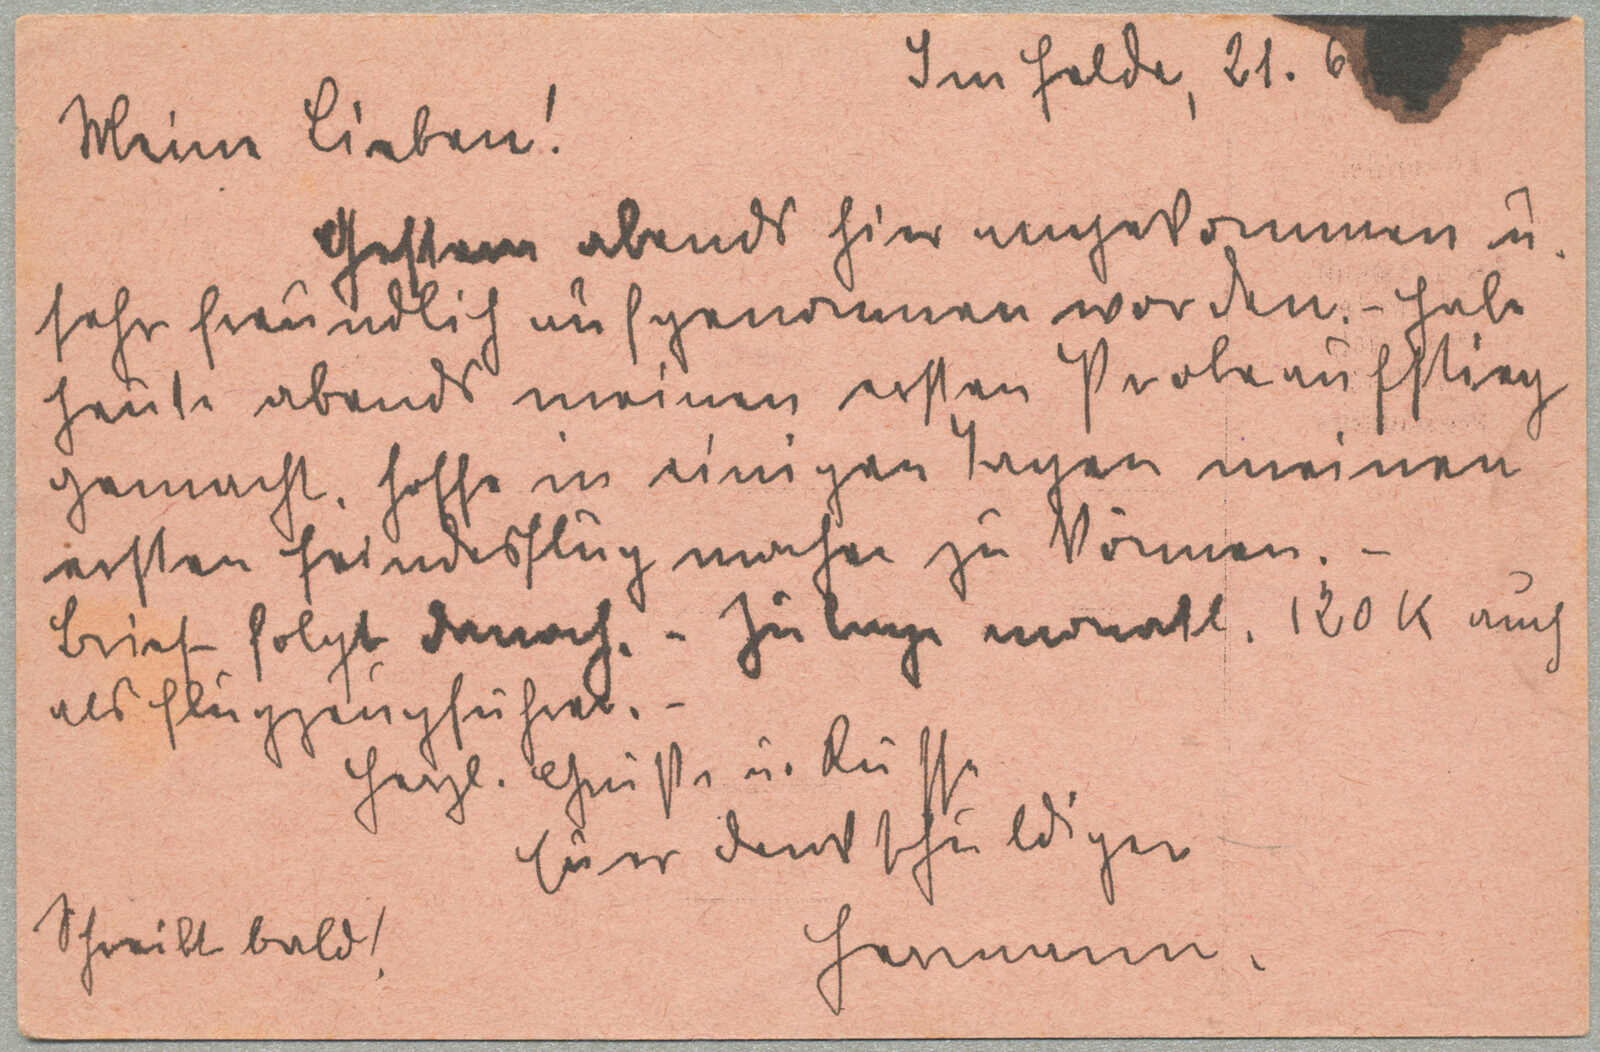 Im Felde, 21. 6
Meine Lieben!
Gestern abends hier angekommen u.
sehr freundlich aufgenommen worden. – Habe
heute abends meinen ersten Probeaufstieg
gemacht, hoffe in einigen Tagen meinen
ersten Feindesflug machen zu können. –
Brief folgt danach. – Zulage monatl. 120 K auch
als Flugzeugführer. –
Herzl. Grüße u. Küsse
Euer dankschuldiger
Hermann.
Schreibt bald!